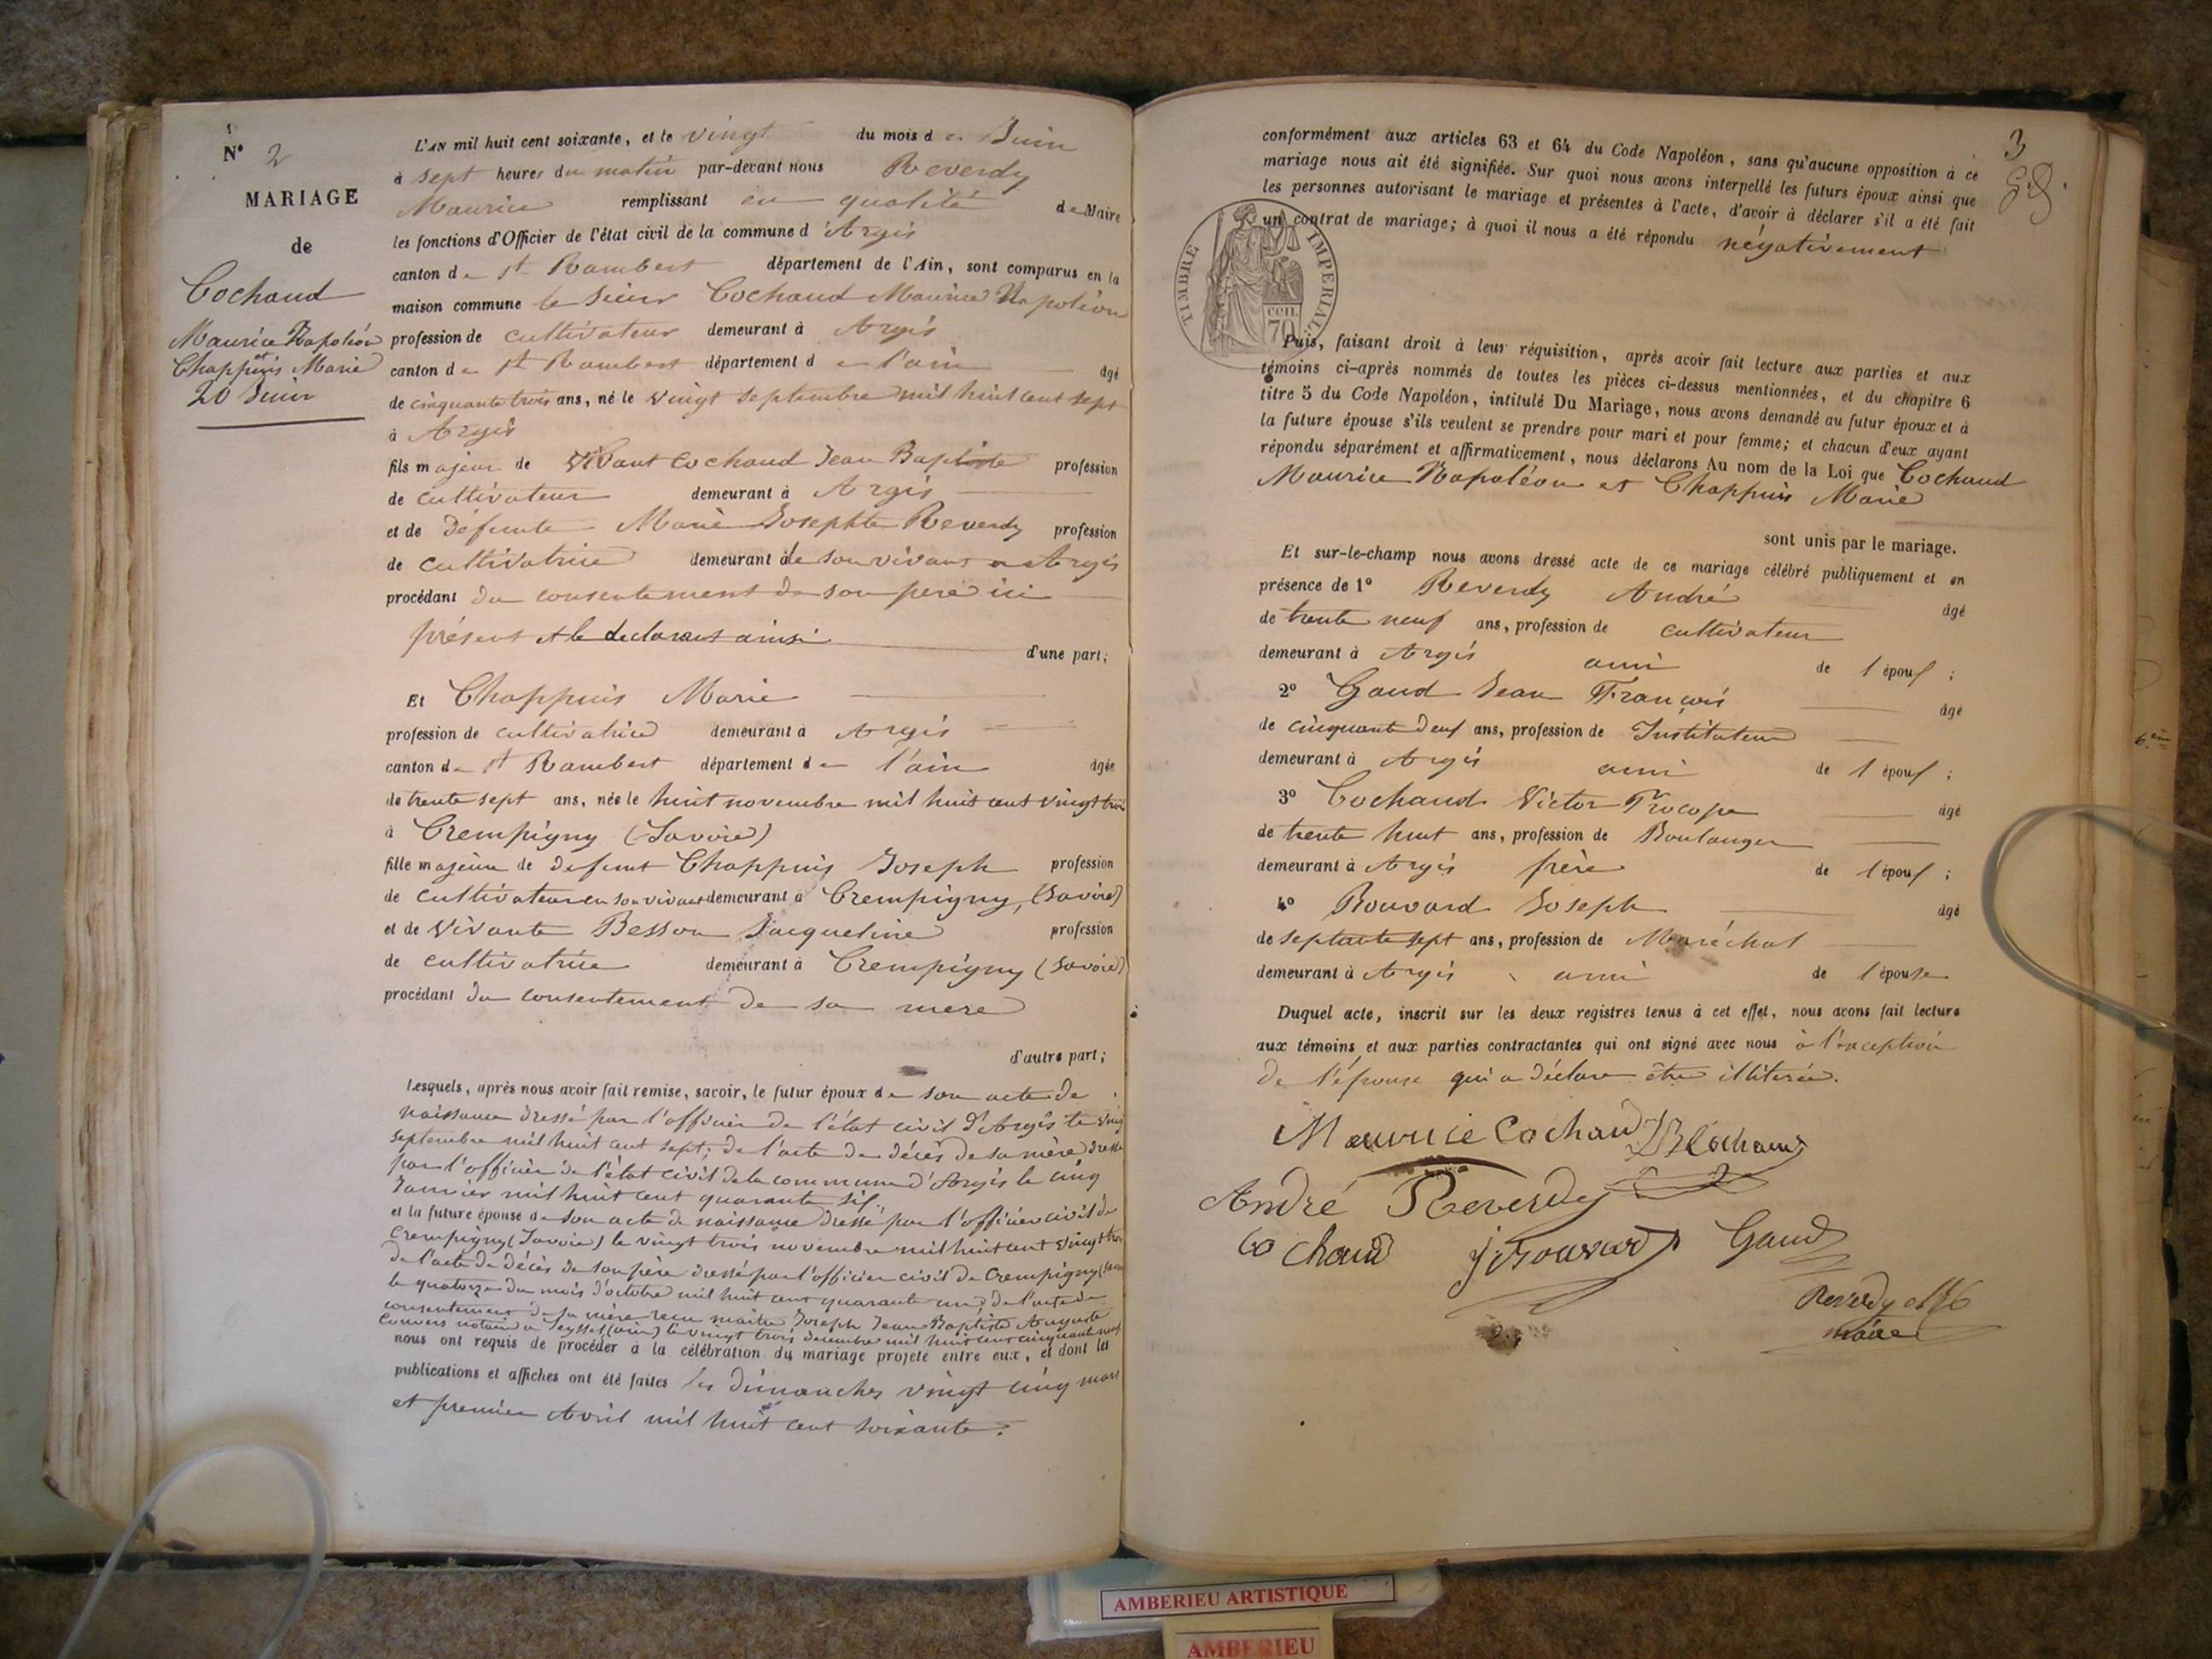 N° 2
MARIAGE
de
Cochaud
Maurice Napoléon
et
Chappuis Marie
20 Juin
L'AN mil huit cent soixante, et le vingt du mois de Juin
à sept heures du matin par-devant nous Reverdy
Maurice remplissant en qualité de Maire
les fonctions d'Officier de l'état civil de la commune d'Argis
canton de St Rambert département de l'Ain, sont comparus en la
maison commune le sieur Cochaud Maurice Napoléon
profession de cultivateur demeurant à Argis
canton de St Rambert département de l'ain âgé
de cinquante trois ans, né le vingt septembre mil huit cent sept
à Argis
fils majeur de vivant Cochaud Jean Baptiste profession
de cultivateur demeurant à Argis
et de défunte Marie Josephte Reverdy profession
de cultivatrice demeurant à de son vivant a Argis
procédant du consentement de son père ici
présent et le declarant ainsi d'une part;
Et Chappuis Marie
profession de cultivatrice demeurant à Argis
canton de St Rambert département de l'ain âgée
de trente sept ans, née le huit novembre mil huit cent vingt trois
à Crempigny (Savoie)
fille majeure de defunt Chappuis Joseph profession
de cultivateur en son vivant demeurant à Crempigny, (Savoie)
et de vivante Besson Jacqueline profession
de cultivatrice demeurant à Crempigny (Savoie)
procédant du consentement de sa mere
d'autre part;
Lesquels, après nous avoir fait remise, savoir, le futur époux de son acte de
naissance dressé par l'officier de l'état civil d'Argis le vingt
septembre mil huit cent sept; de l'acte de décès de sa mère dressé
par l'officier de l'état civil de la commune d'Argis le cinq
Janvier mil huit cent quarante six.
et la future épouse de son acte de naissance dressé par l'officier civil de
Crempigny (Savoie) le vingt trois novembre mil huit cent vingt trois
de l'acte de décès de son père dressé par l'officier civil de Crempigny (Savoie
le quatorze du mois d'octobre mil huit cent quarante un; de l'acte de
consentement de sa mère reçu maître Joseph Jean Baptiste Auguste
notaire a Seyssel (ain) le vingt trois decembre mil huit cent cinquante neuf
nous ont requis de procéder à la célébration du mariage projeté entre eux, et dont les
publications et affiches ont été faites les dimanches vingt cinq mars
et premier Avril mil huit cent soixante.
3
conformément aux articles 63 et 64 du Code Napoléon, sans qu'aucune opposition à ce
mariage nous ait été signifiée. Sur quoi nous avons interpellé les futurs époux ainsi que
les personnes autorisant le mariage et présentes à l'acte, d'avoir à déclarer s'il a été fait
un contrat de mariage; à quoi il nous a été répondu négativement
TIMBRE IMPERIAL
CEN.
70
Puis, faisant droit à leur réquisition, après avoir fait lecture aux parties et aux
témoins ci-après nommés de toutes les pièces ci-dessus mentionnées, et du chapitre 6
titre 5 du Code Napoléon, intitulé Du Mariage, nous avons demandé au futur époux et à
la future épouse s'ils veulent se prendre pour mari et pour femme; et chacun d'eux ayant
répondu séparément et affirmativement, nous déclarons Au nom de la Loi que Cochaud
Maurice Napoléon et Chappuis Marie
sont unis par le mariage.
Et sur-le-champ nous avons dressé acte de ce mariage célébré publiquement et en
présence de 1° Reverdy André âgé
de trente neuf ans, profession de cultivateur
demeurant à Argis ami de l époux;
2° Gaud Jean François âgé
de cinquante deux ans, profession de Instituteur
demeurant à Argis ami de l époux;
3° Cochaud Victor Procope âgé
de trente huit ans, profession de Boulanger
demeurant à Argis frère de l époux;
4° Rouvard Joseph âgé
de septante sept ans, profession de Maréchal
demeurant à Argis ami de l épouse
Duquel acte, inscrit sur les deux registres tenus à cet effet, nous avons fait lecture
aux témoins et aux parties contractantes qui ont signé avec nous à l'exception
de l'épouse qui a déclaré être illiterée.
Maurice Cochaud JB Cochaud
André Reverdy
Cochaud J Rouvard Gaud
Reverdy
maire
AMBERIEU ARTISTIQUE
AMBERIEU